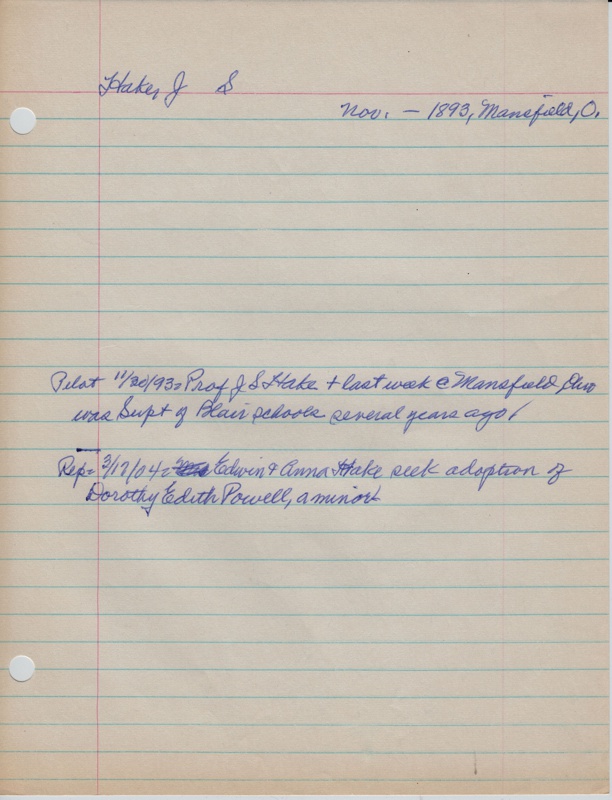 Hake, J S
Nov. — 1893, Mansfield, O.
Pilot 11/30/93= Prof J S Hake + last week @ Mansfield, Ohio
was Supt of Blair schools several years ago /
Rep= 3/17/04= Edwin & Anna Hake seek adoption of
Dorothy Edith Powell, a minor